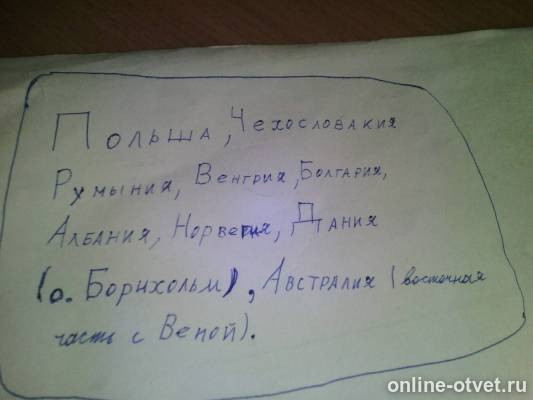 Польша, Чехословакия
Румыния, Венгрия, Болгария,
Албания, Норвегия, Дания
(о. Борнхольм), Австралия (восточная
часть с Веной).
online-otvet.ru